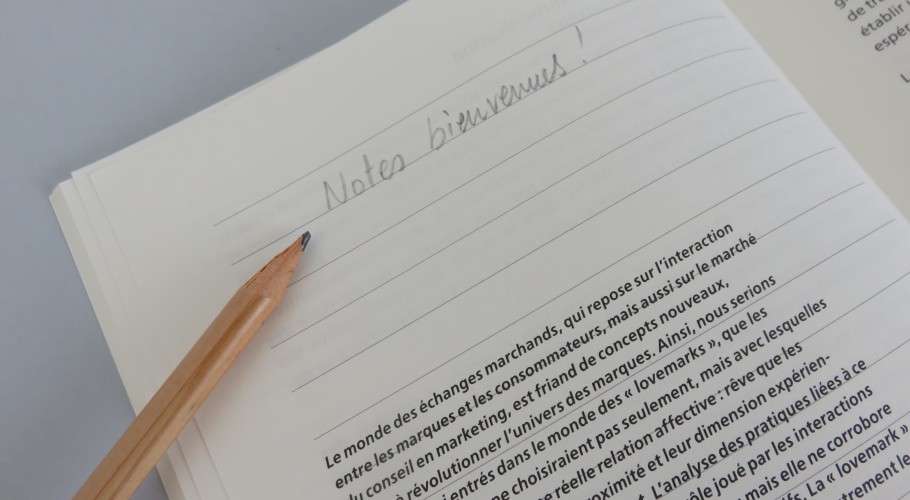 Notes bienvenues !
Le monde des échanges marchands, qui repose sur l'interaction
entre les marques et les consommateurs, mais aussi sur le marché
du conseil en marketing, est friand de concepts nouveaux,
à révolutionner l'univers des marques. Ainsi, nous serions
entrés dans le monde des « lovemarks », que les
ne choisiraient pas seulement, mais avec lesquelles
ne réelle relation affective : rêve que les
oximité et leur dimension expérien-
L'analyse des pratiques liées à ce
ôle joué par les interactions
mais elle ne corrobore
s. La « lovemark »
rement le
de tr
établir
espér
L